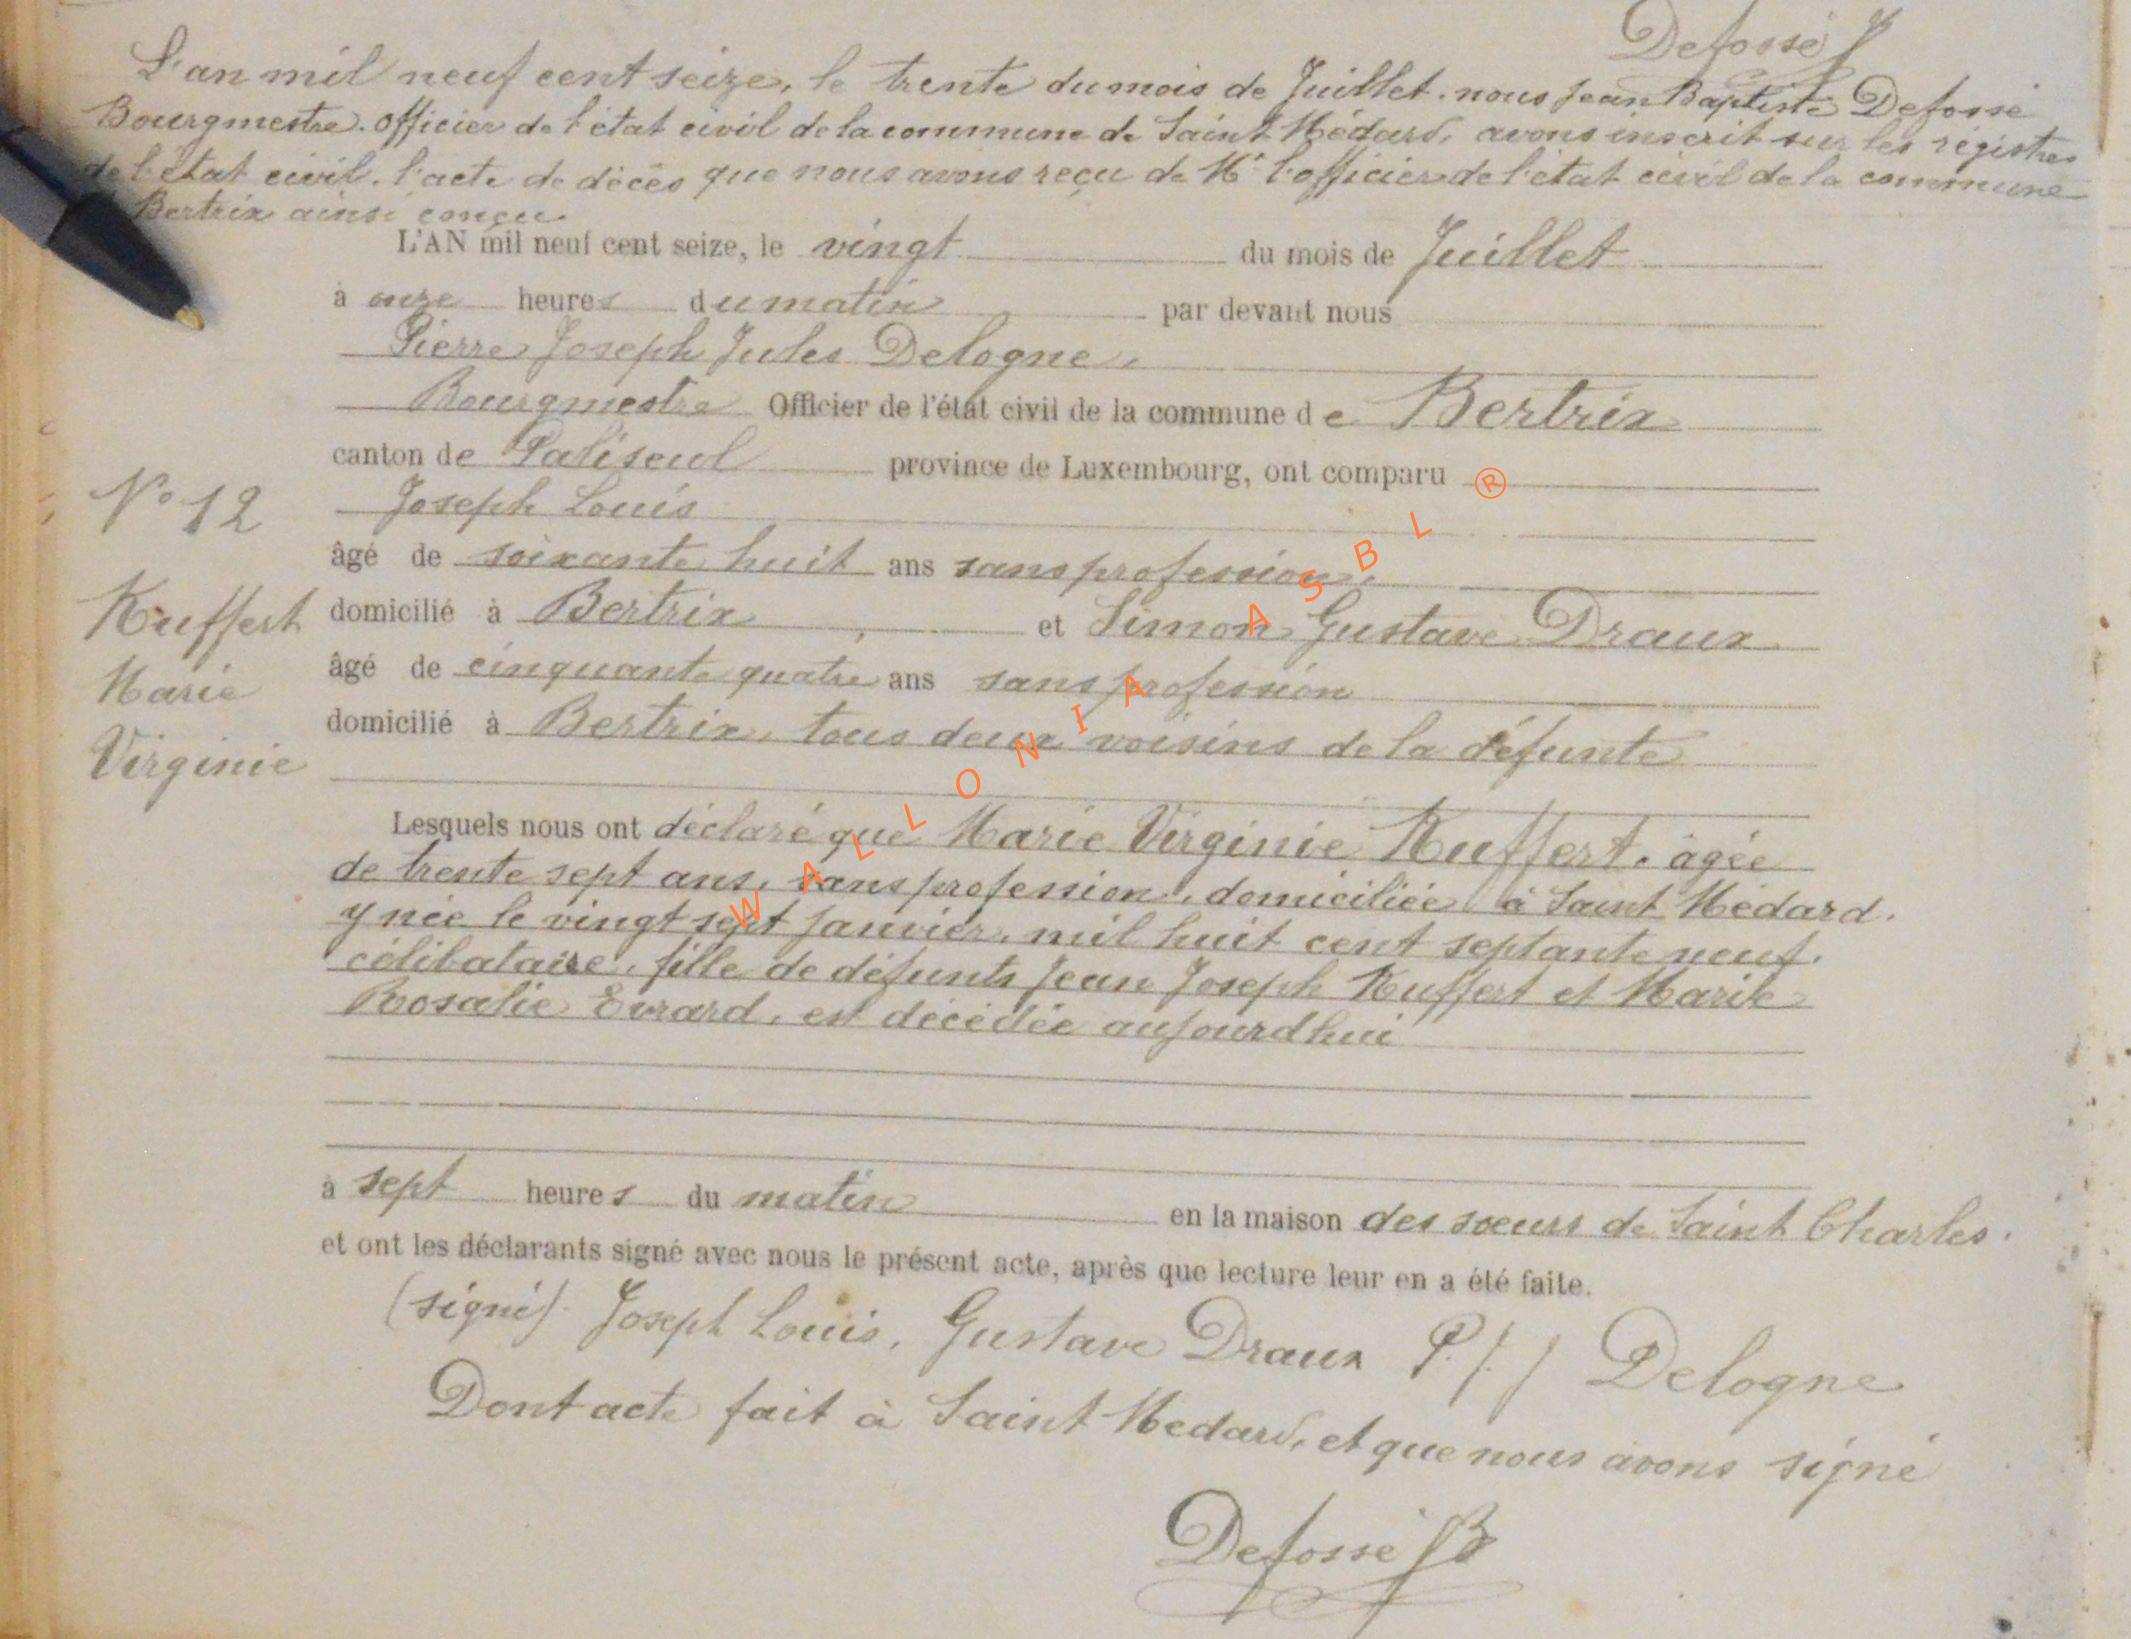 Defossé J
L'an mil neuf cent seize, le trente du mois de Juillet. nous Jean Baptiste Defossé
Bourgmestre. officier de l'état civil de la commune de Saint Médard, avons inscrit sur les régistres
de l'état civil. l'acte de décès que nous avons reçu de Mr l'officier de l'état civil de la commune
Bertrix ainsi conçu.
L'AN mil neuf cent seize, le vingt du mois de Juillet
à onze heures du matin par devant nous
Pierre Joseph Jules Delogne,
Bourgmestre Officier de l'état civil de la commune de Bertrix
canton de Paliseul province de Luxembourg, ont comparu
Joseph Louis
N° 12
âgé de soixante huit ans sans profession,
Kuffert domicilié à Bertrix, et Simon Gustave Draux
Marie âgé de cinquante quatre ans sans profession
Virginie domicilié à Bertrix, tous deux voisins de la défunte
Lesquels nous ont déclaré que Marie Virginie Kuffert. âgée
de trente sept ans, sans profession, domiciliée à Saint Médard.
y née le vingt sept Janvier, mil huit cent septante neuf.
célibataire, fille de défunts Jean Joseph Kuffert et Marie
Rosalie Evrard, est décédée aujourdhui
à sept heures du matin en la maison des sœurs de Saint Charles.
et ont les déclarants signé avec nous le présent acte, après que lecture leur en a été faite.
(signé). Joseph Louis, Gustave Draux P. J. J Delogne
Dont acte fait à Saint Medard, et que nous avons signé
Defossé JB
WALLONIA ASBL ®